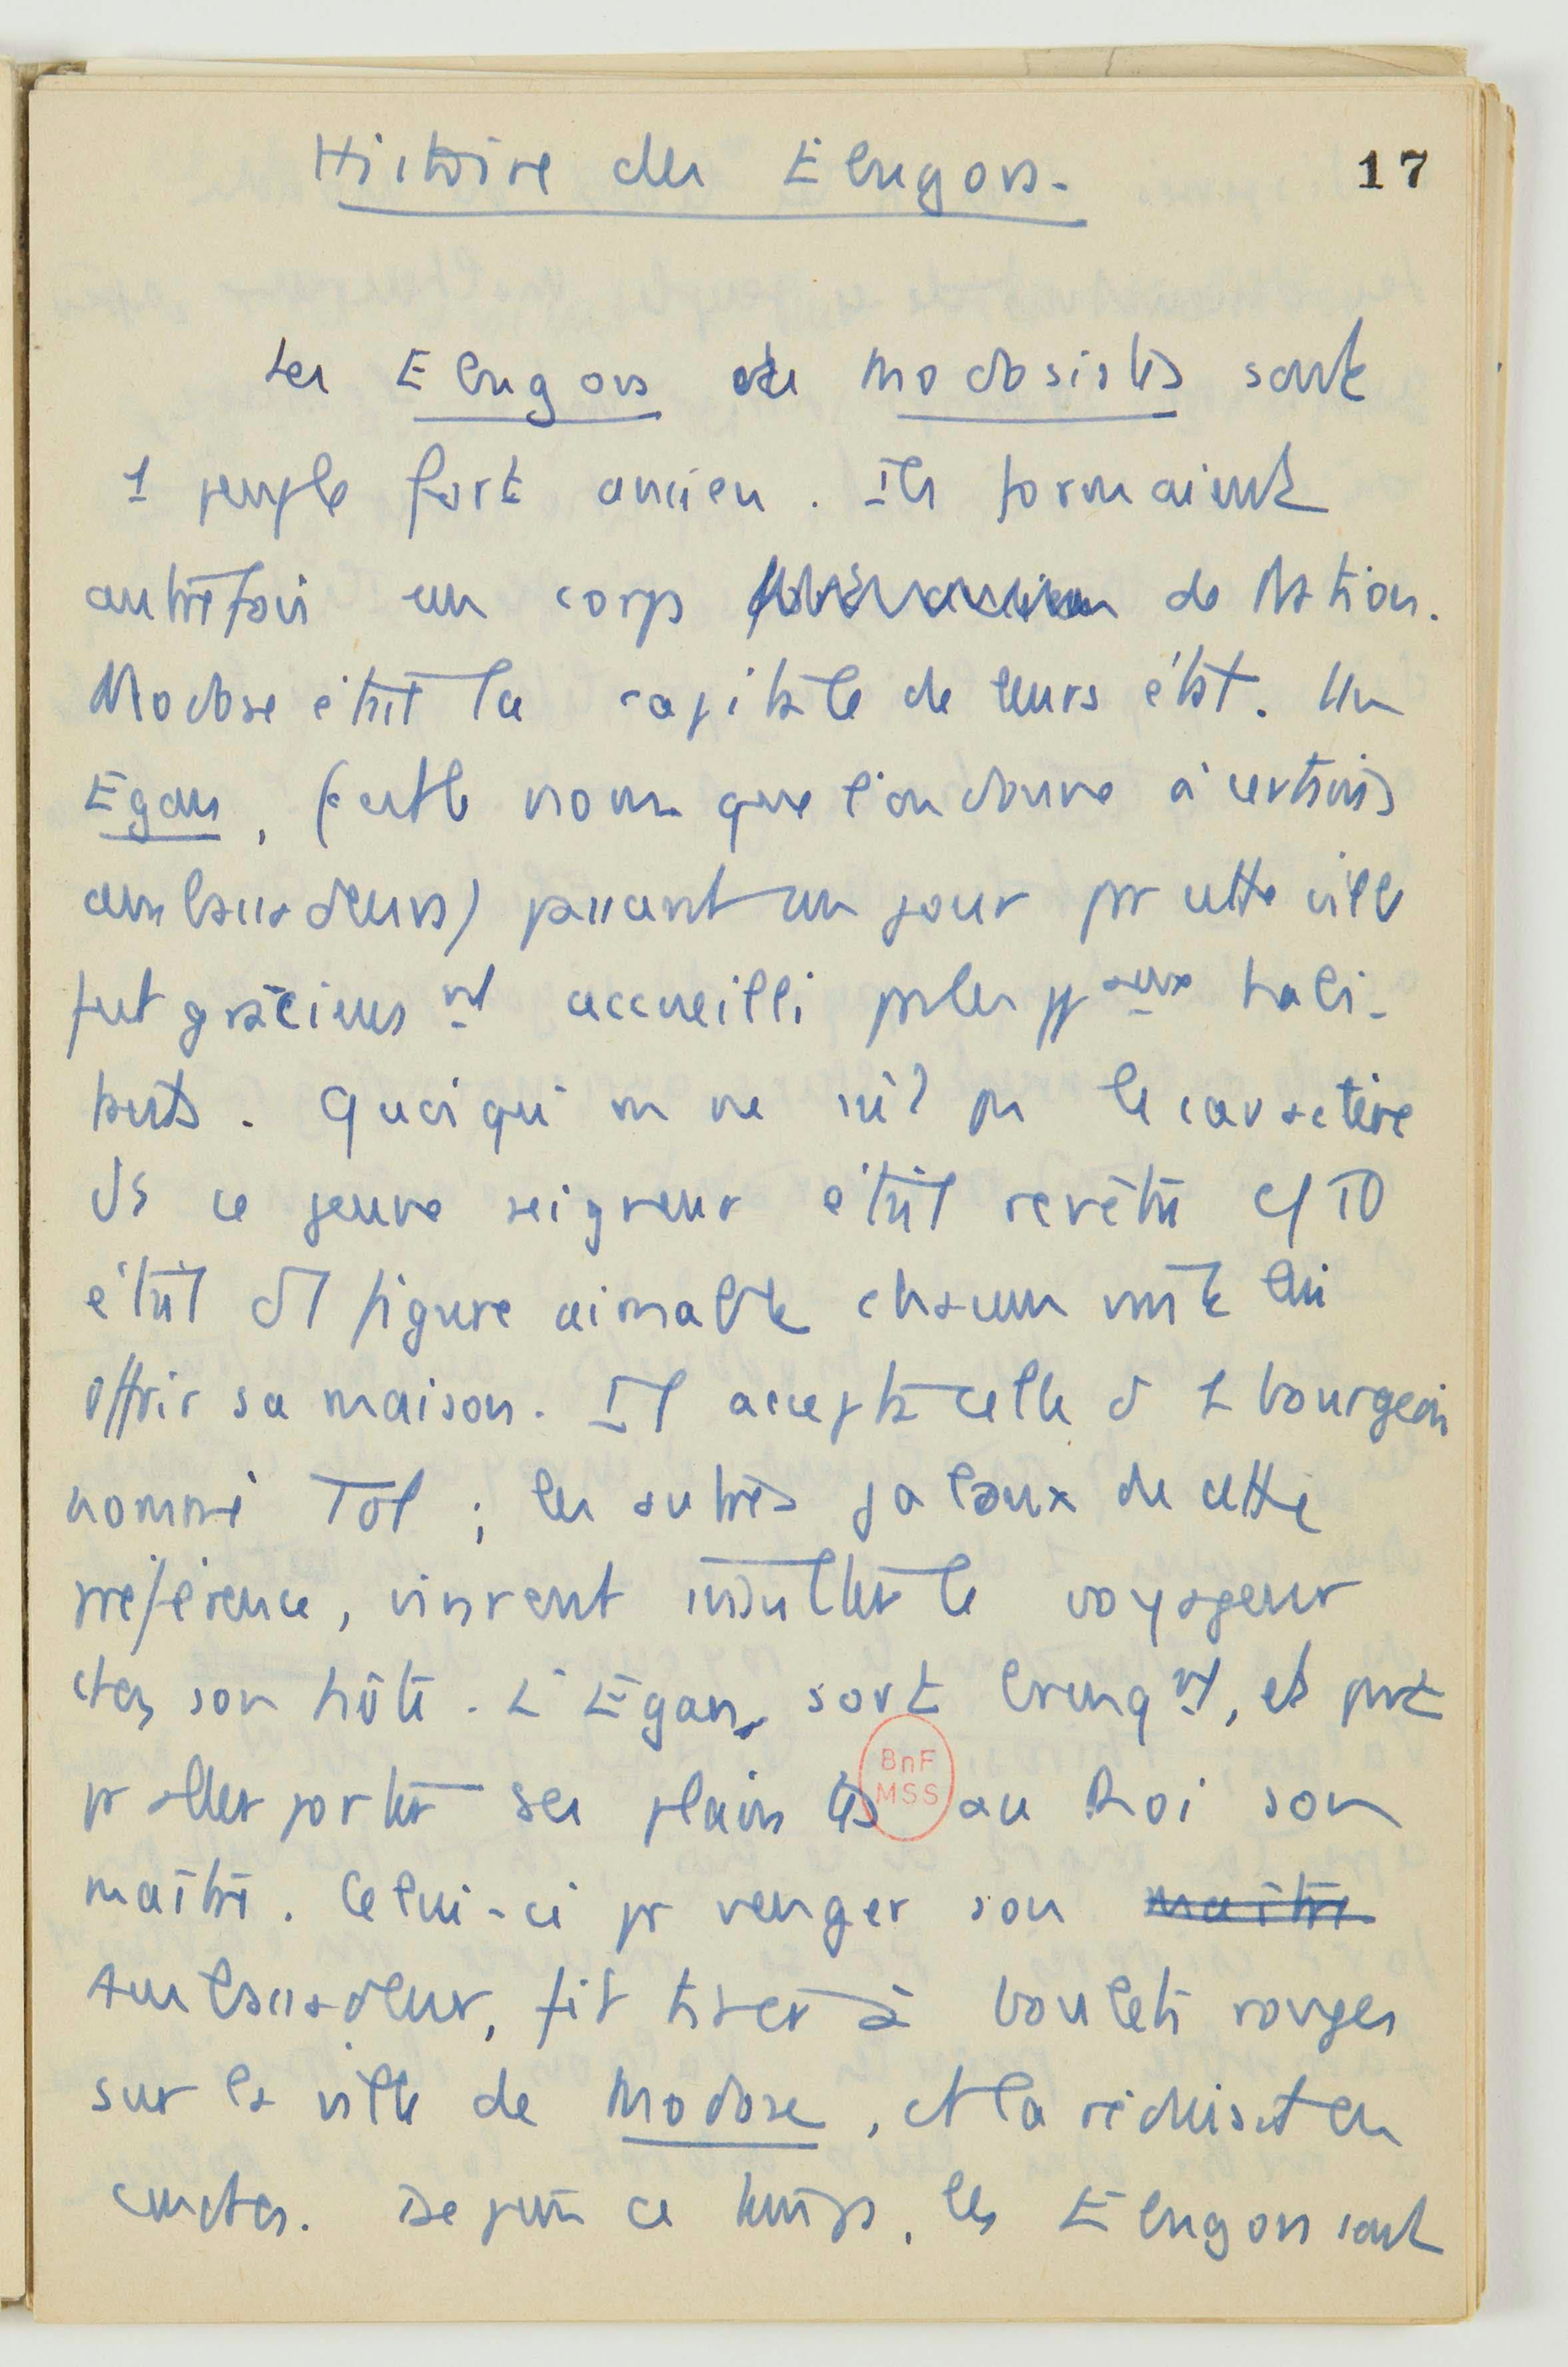 Histoire des Elugons.
17
Les Elugons de Modosistes sont
1 peuple fort ancien. Ils formaient
autrefois un corps de Nation.
Modose était la capitale de leurs état. Un
Egan, (c'est le nom que l'on donne à certains
ambassadeurs) passant un jour pr cette ville
fut gracieusnt accueilli pr les ppaux habi-
tants. Quoiqu'on ne sût pas le caractère
ds ce jeune seigneur était revêtu c/
était d figure aimable chacun vint lui
offrir sa maison. Il accepta celle d 1 bourgeois
nommé Tol ; les autres jaloux de cette
préférence, vinrent insulter le voyageur
chez son hôte. L'Egan, sort brusqnt, et part
pr aller porter ses plaintes au Roi son
maître. Celui-ci pr venger son maître
Ambassadeur, fit tirer à boulets rouges
sur la ville de Modose, et la réduisit en
cendres. Depuis ce temps, les Elugons sont
BnF
MSS